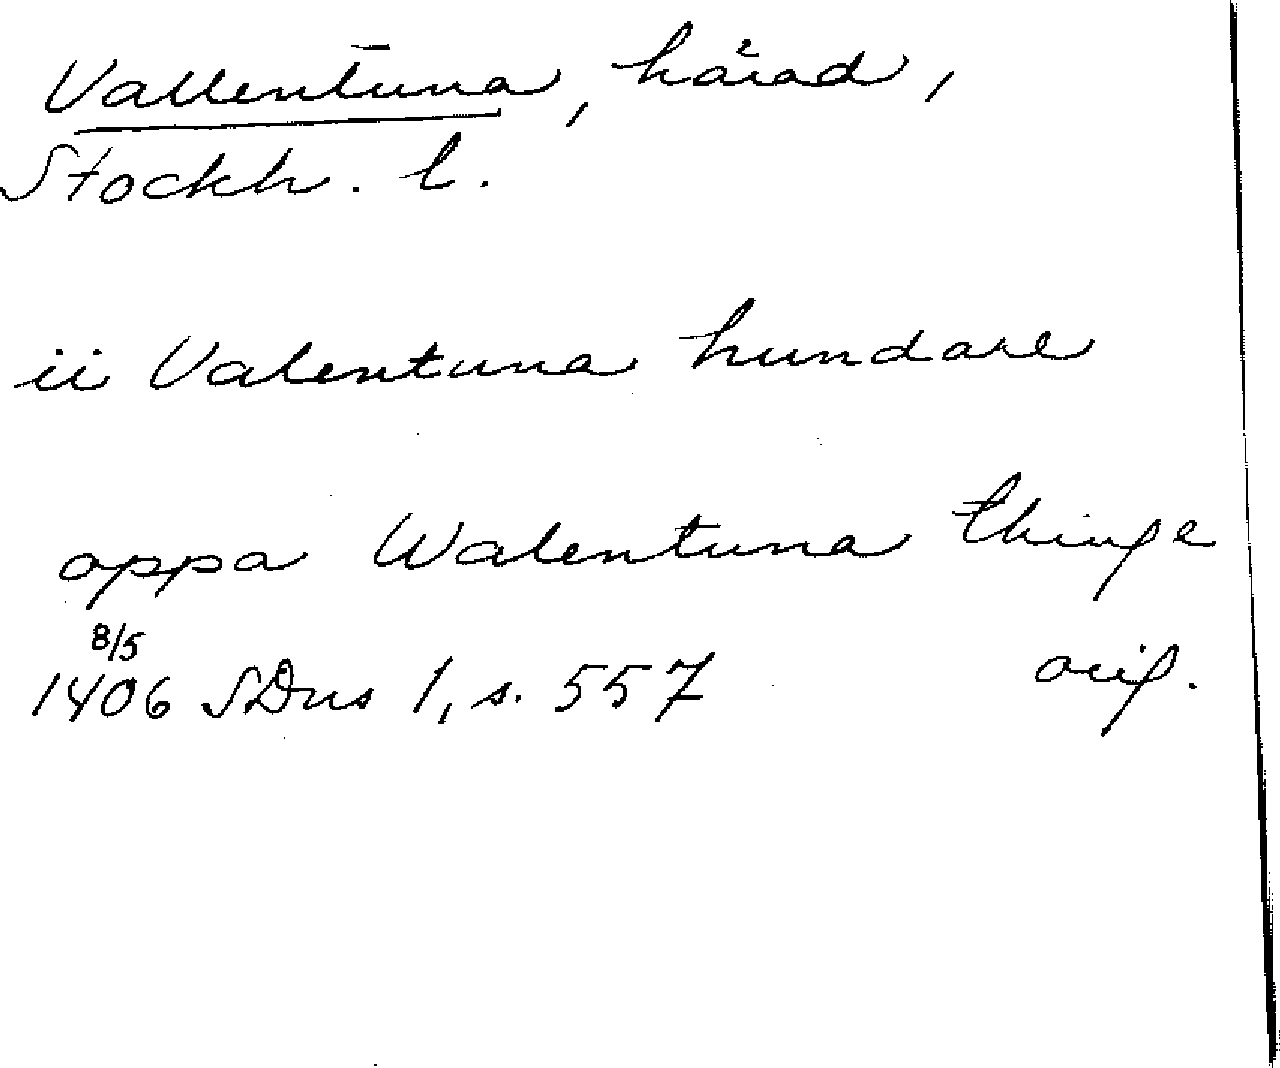 Vallentuna, härad,
Stockh. l.
ii Valentuna hundare
oppa Walentuna thinge
8/5
1406 SDns 1, s. 557 orig.